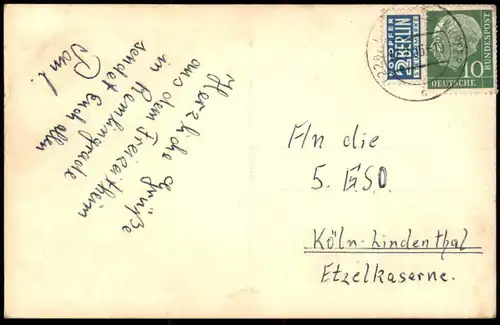 Herzliche Grüße
aus dem Freizeitheim
in Remlingrade
sendet Euch allen
Paul.
NOTOPFER
2 BERLIN
STEUERMARKE
DEUTSCHE
BUNDESPOST
10
An die
5. ESO
Köln-Lindenthal
Etzelkaserne.